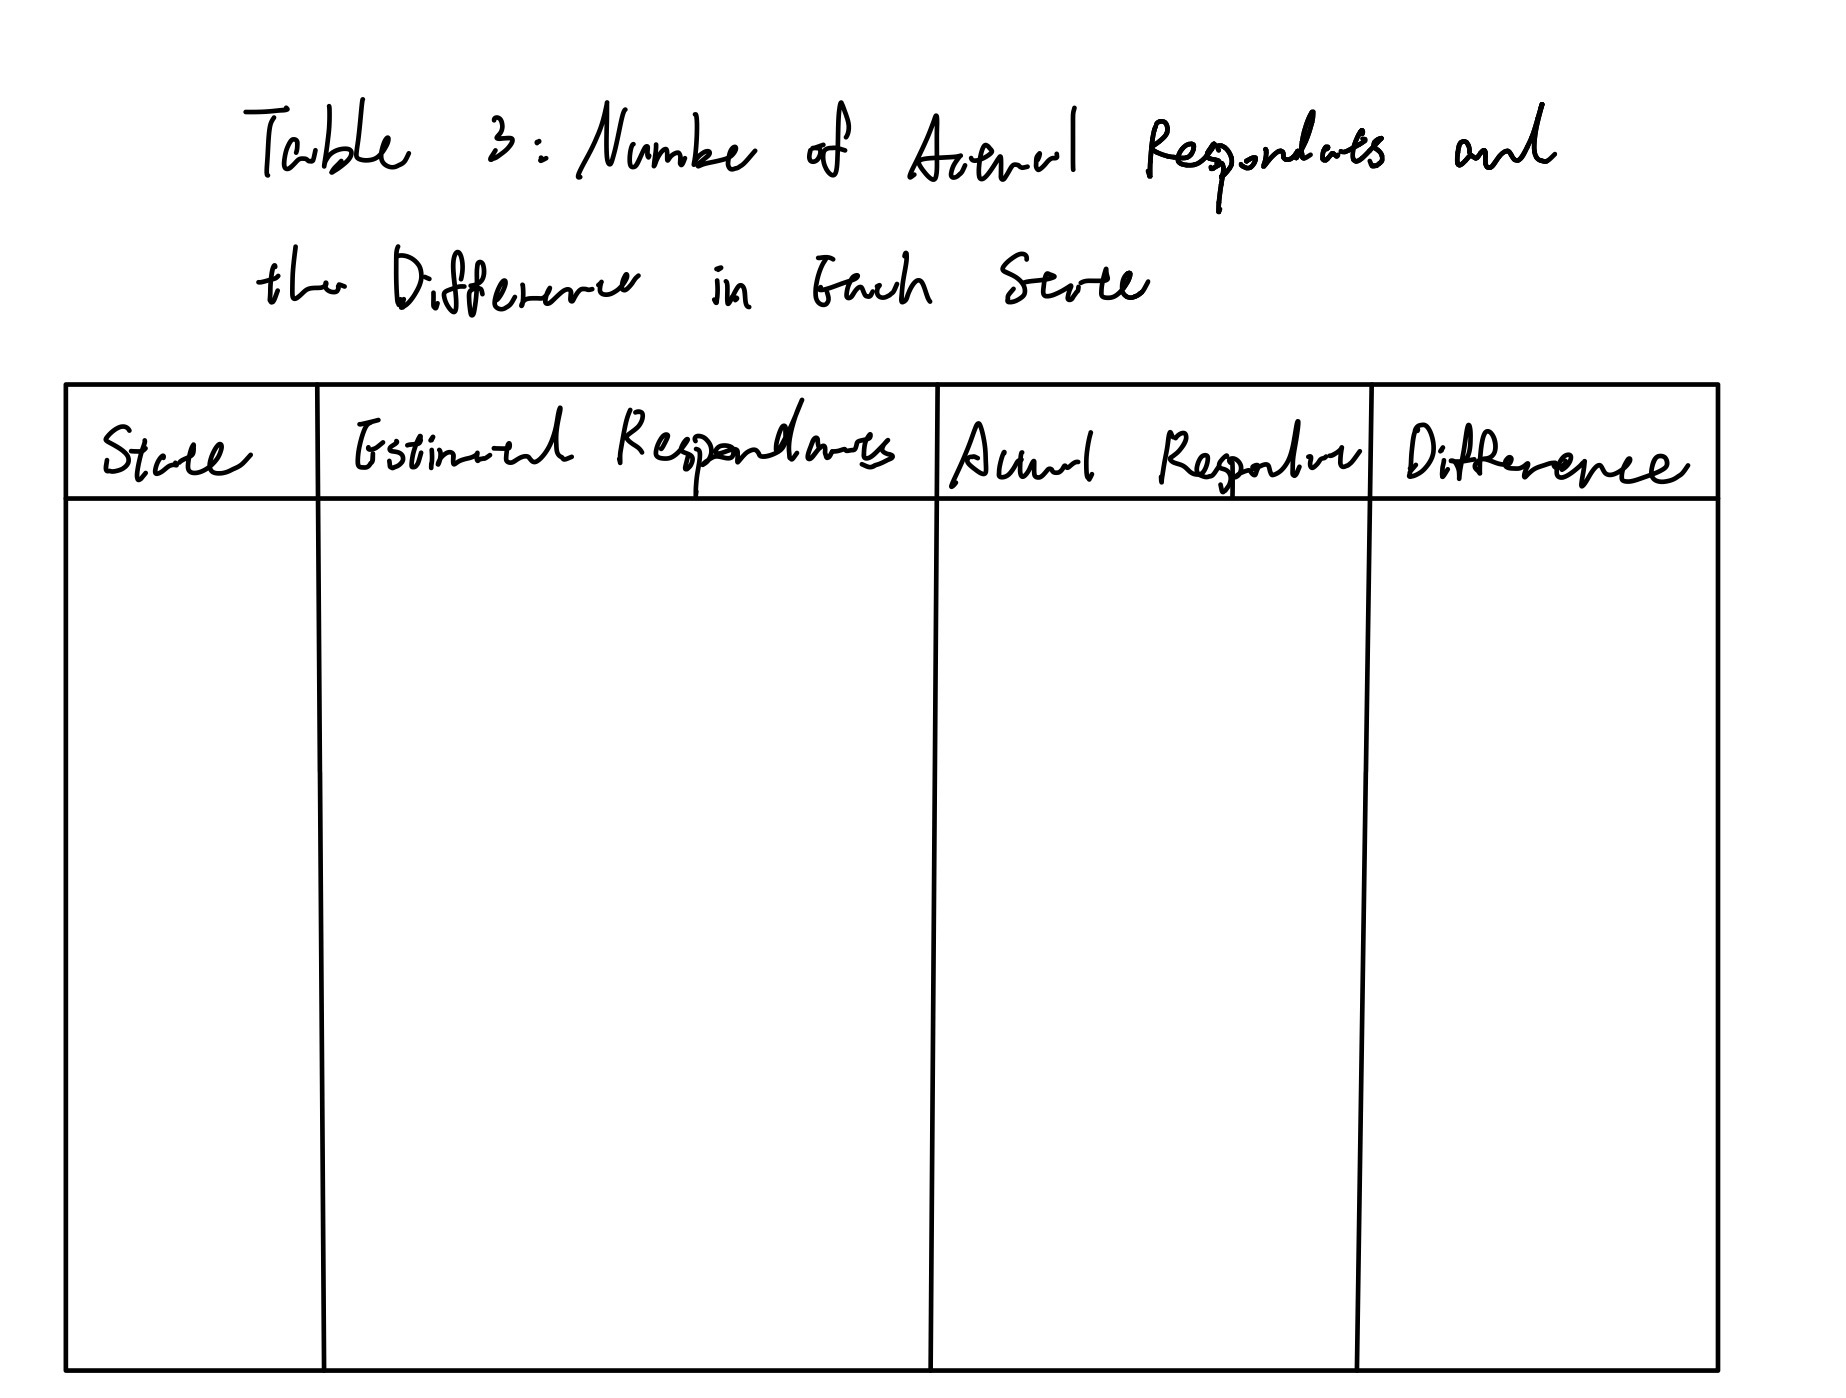 Table 3: Number of Actual Respondents and
the Difference in Each State
State Estimated Respondents Actual Respondents Difference